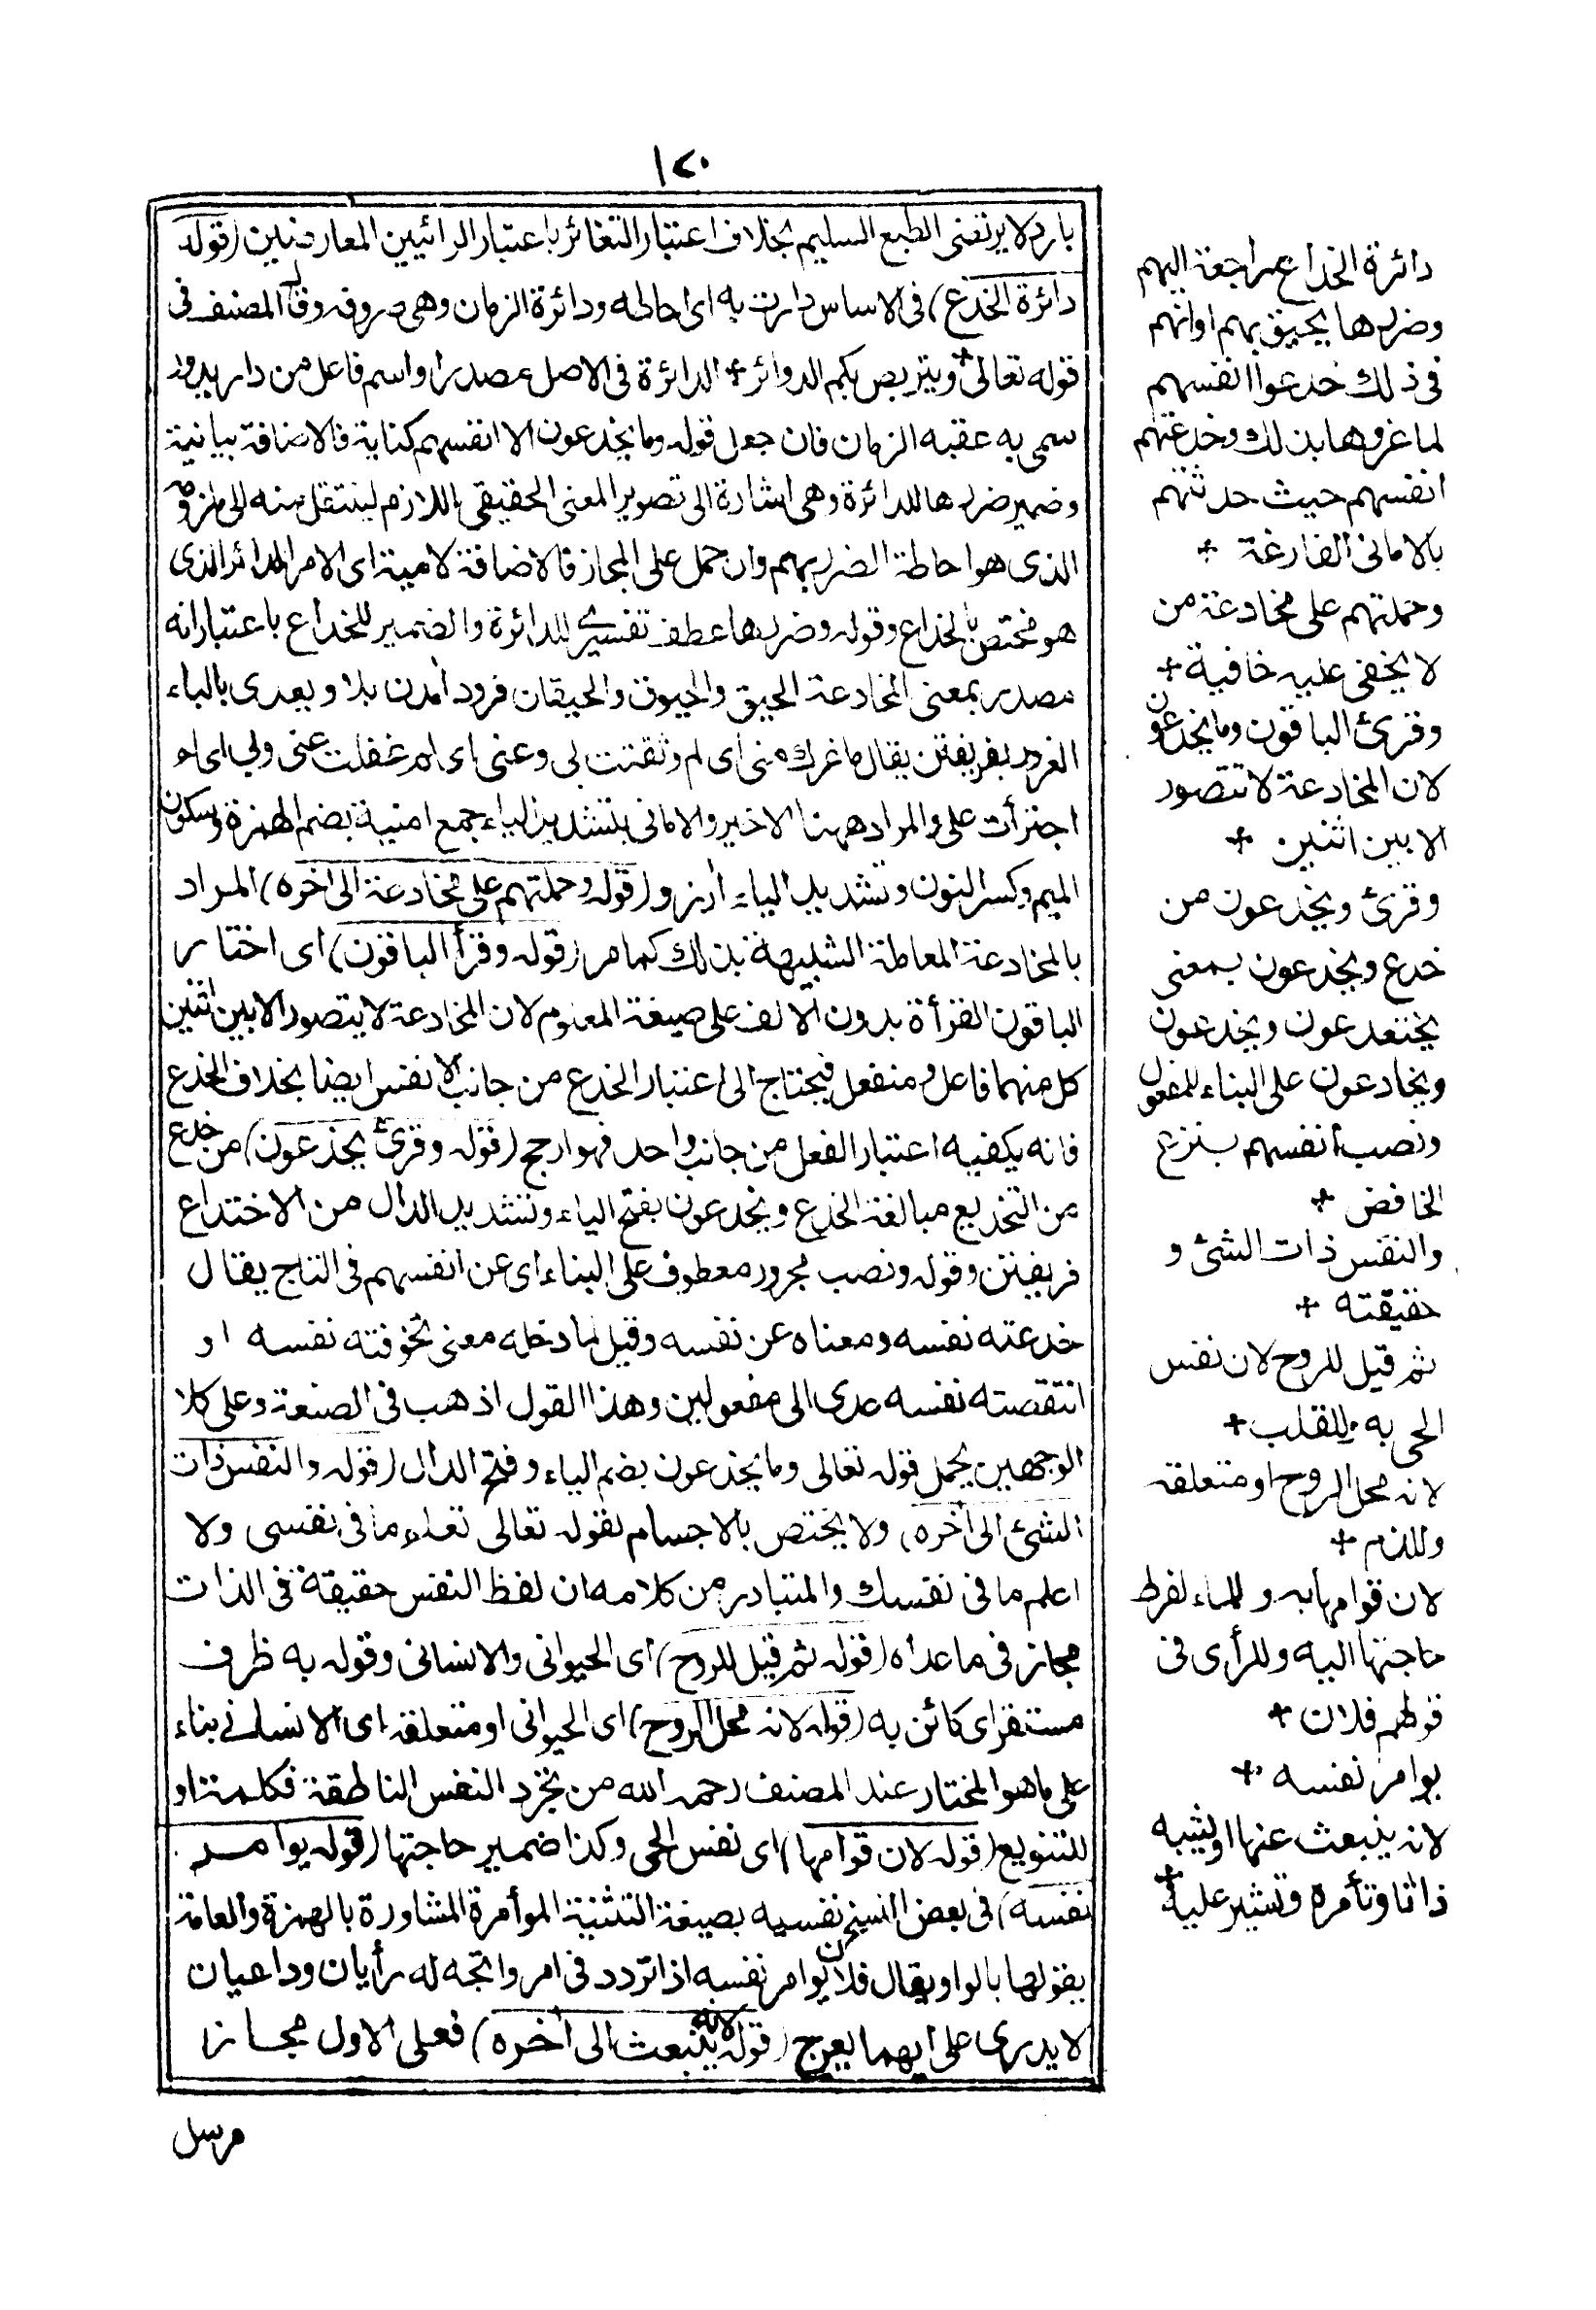 ١٢٠
بارد لا يرتضى الطبع السليم بخلاف اعتبار التغائر باعتبار الرائيين المعارضين (قوله
دائرة الخدع) فى الاساس دارت به اى احاطه ودائرة الزمان وهى صروفه وقال المصنف فى
قوله تعالى + ويتربص بكم الدوائر + الدائرة فى الاصل مصدرا واسم فاعل من دار يدور
سمى به عقبه الزمان فان جعل قوله وما يخدعون الا انفسهم كناية فالاضافة بيانية
وضمير ضررها للدائرة وهى اشارة الى تصوير المعنى الحقيقى اللازم لينتقل منه الى ملزومه
الذى هو احاطة الضرر بهم وان حمل على المجاز فالاضافة لامية اى الامر الدائر الذى
هو مختص بالخداع وقوله وضررها عطف تفسيرى للدائرة والضمير للخداع باعتبار انه
مصدر بمعنى المخادعة الحيق والحيوق والحيقان فرود آمدن بلا ويعدى بالباء
الغرور بفريفتن يقال ما غرك منى اى لم وثقت لى وعنى اى لم غفلت عنى وبي اى لم
اجترأت على والمراد ههنا الاخير والامانى بتشديد الياء جمع امنية بضم الهمزة وسكون
الميم وكسر النون وتشديد الياء أرزو (قوله وحملتهم على مخادعة الى اخره) المراد
بالمخادعة المعاملة الشبيهة بذلك كما مر (قوله وقرأ الباقون) اى اختار
الباقون القرأة بدون الالف على صيغة المعلوم لان المخادعة لا يتصور الا بين اثنين
كل منهما فاعل ومنفعل فيحتاج الى اعتبار الخدع من جانب الانفس ايضا بخلاف الخدع
فانه يكفيه اعتبار الفعل من جانب واحد فهو ارجح (قوله وقرئ يخدعون) من خدع
من التخديع مبالغة الخدع ويخدعون بفتح الياء وتشديد الدال من الاختداع
فريفتن وقوله ونصب مجرور معطوف على البناء اى عن انفسهم فى التاج يقال
خدعته نفسه ومعناه عن نفسه وقيل لما دخله معنى تخوفته نفسه او
انتقصته نفسه عدى الى مفعولين وهذا القول اذهب فى الصنعة وعلى كلا
الوجهين يحمل قوله تعالى وما يخدعون بضم الياء وفتح الدال (قوله والنفس ذات
الشئ الى آخره) ولا يختص بالاجسام لقوله تعالى تعلم ما فى نفسى ولا
اعلم ما فى نفسك والمتبادر من كلامه ان لفظ النفس حقيقة فى الذات
مجاز فى ما عداه (قوله ثم قيل للروح) اى الحيوانى والانسانى وقوله به ظرف
مستقر اى كائن به (قوله لانه محل الروح) اى الحيوانى او متعلقه اى الانسانى بناء
على ما هو المختار عند المصنف رحمه الله من تجرد النفس الناطقة فكلمة او
للتنويع (قوله لان قوامها) اى نفس الحى وكذا ضمير حاجتها (قوله يوامر
نفسه) فى بعض النسخ نفسيه بصيغة التثنية المؤامرة المشاورة بالهمزة والعامة
يقولها بالواو ويقال فلان يوامر نفسيه اذا تردد فى امر واتجه له رأيان وداعيان
لا يدرى على ايهما يعرج (قوله لانه ينبعث الى آخره) فعلى الاول مجاز
مرسل
دائرة الخداع راجعة اليهم
وضررها يحيق بهم او انهم
فى ذلك خدعوا انفسهم
لما غروها بذلك وخدعتهم
انفسهم حيث حدثتهم
بالامانى الفارغة +
وحملتهم على مخادعة من
لا يخفى عليه خافية +
وقرئ الباقون وما يخدعون
لان المخادعة لا تتصور
الا بين اثنين +
وقرئ ويخدعون من
خدع ويخدعون بمعنى
يختدعون ويخدعون
ويخادعون على البناء للمفعول
ونصب انفسهم بنزع
الخافض +
والنفس ذات الشئ و
حقيقته +
ثم قيل للروح لان نفس
الحى به وللقلب +
لانه محل الروح او متعلقه
وللدم +
لان قوامها به وللماء لفرط
حاجتها اليه وللرأى فى
قولهم فلان +
يوامر نفسه +
لانه ينبعث عنها او يشبه
ذاتا تأمره وتشير عليه +